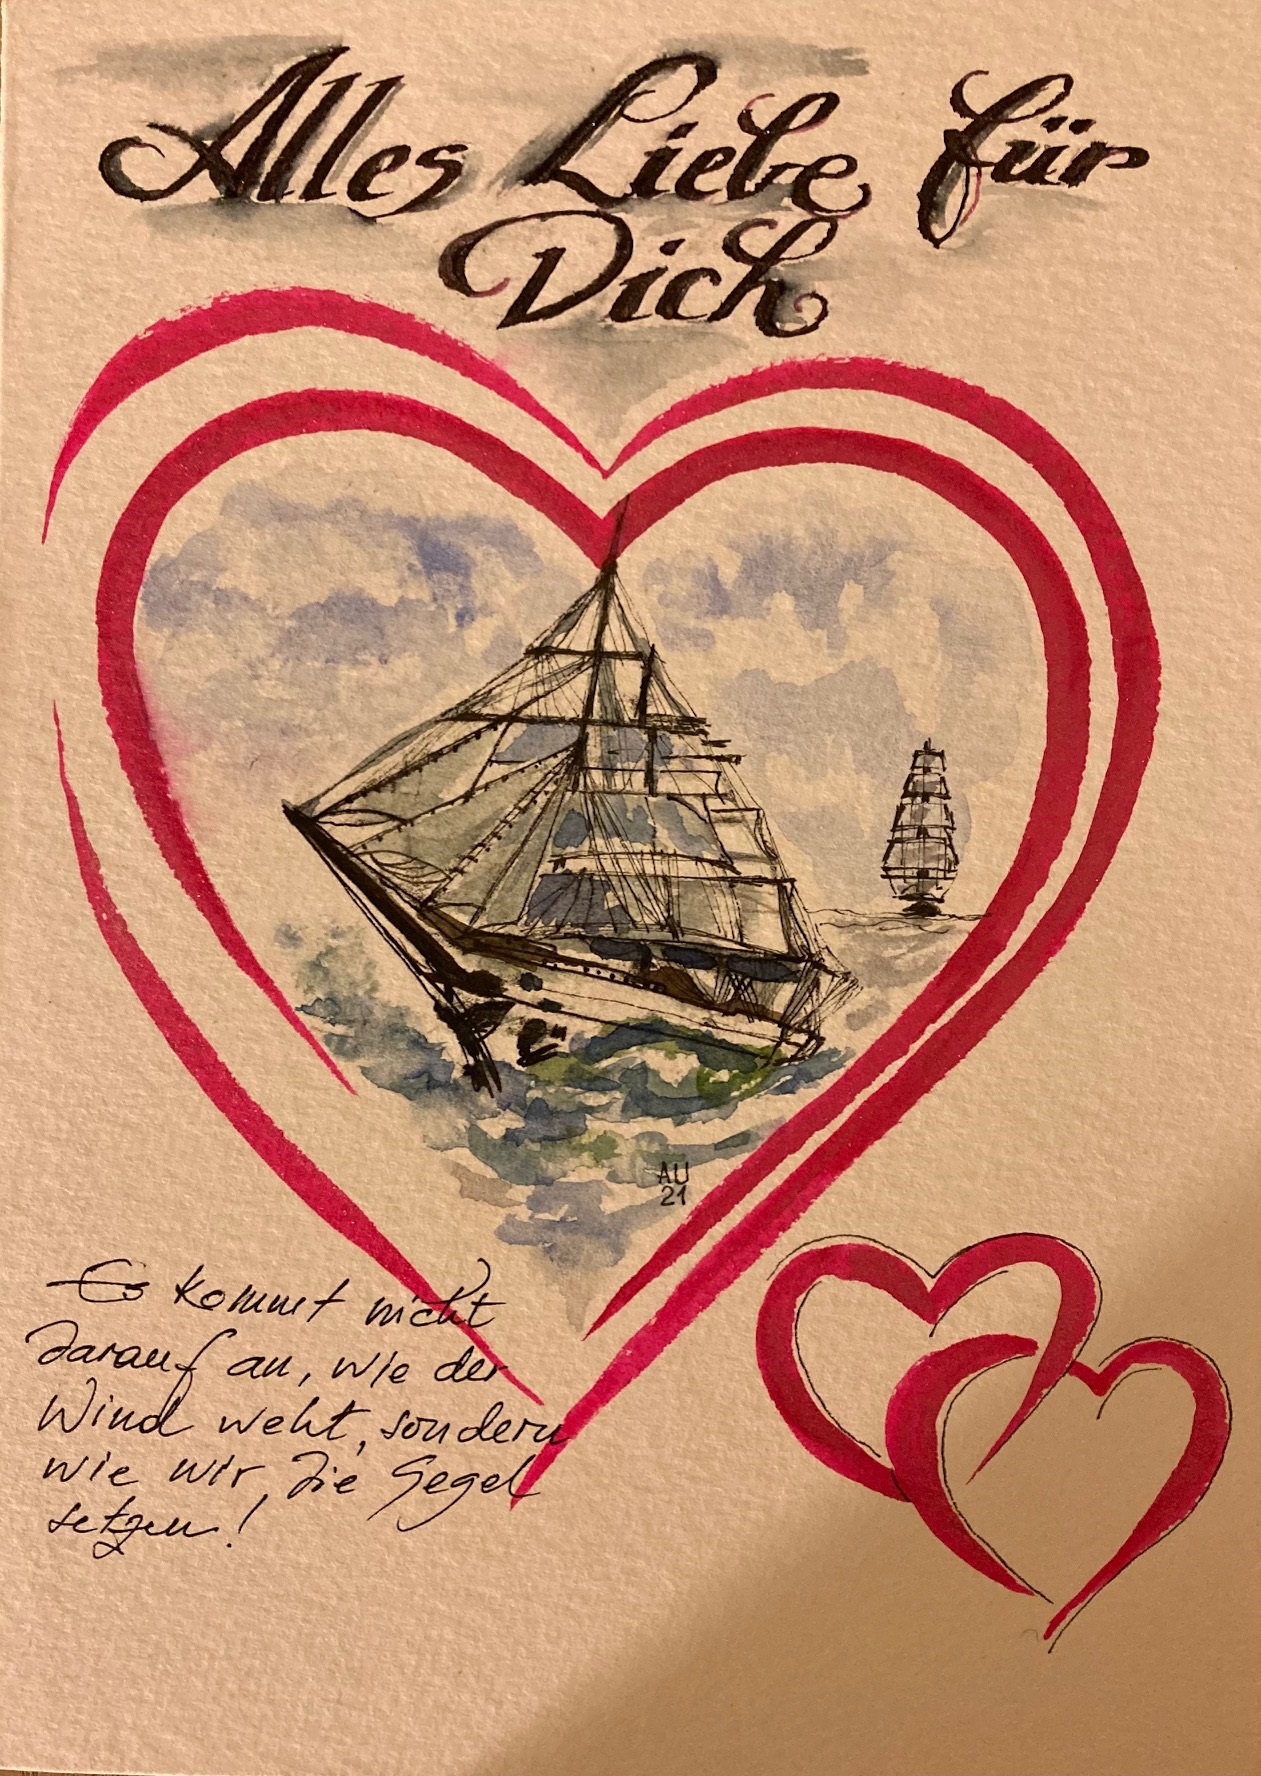 Alles Liebe für
Dich
AU
21
Es kommt nicht
darauf an, wie der
Wind weht, sondern
wie wir die Segel
setzen!